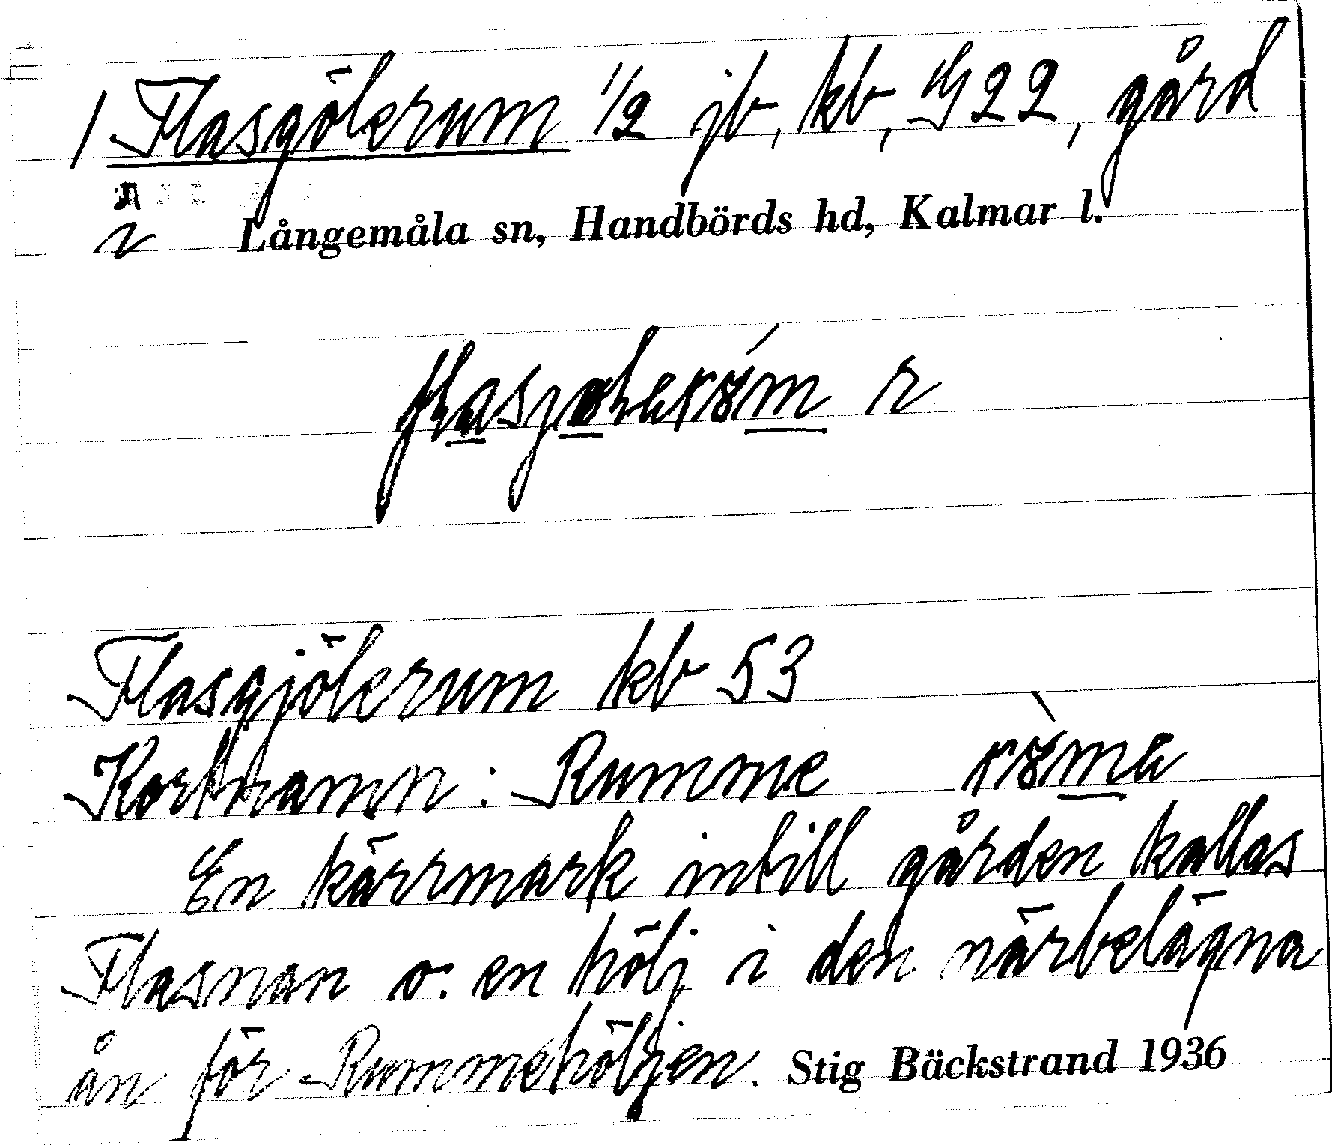 1 Flasgölerum 1/2 jb, kb, EG 22, gård
i Långemåla sn, Handbörds hd, Kalmar l.
r
Flasgjölerum kb 53
Kortnamn: Rumme
En kärrmark intill gården kallas
Flasnan o. en hölj i den närbelägna
ån för Rummehöljen. Stig Bäckstrand 1936